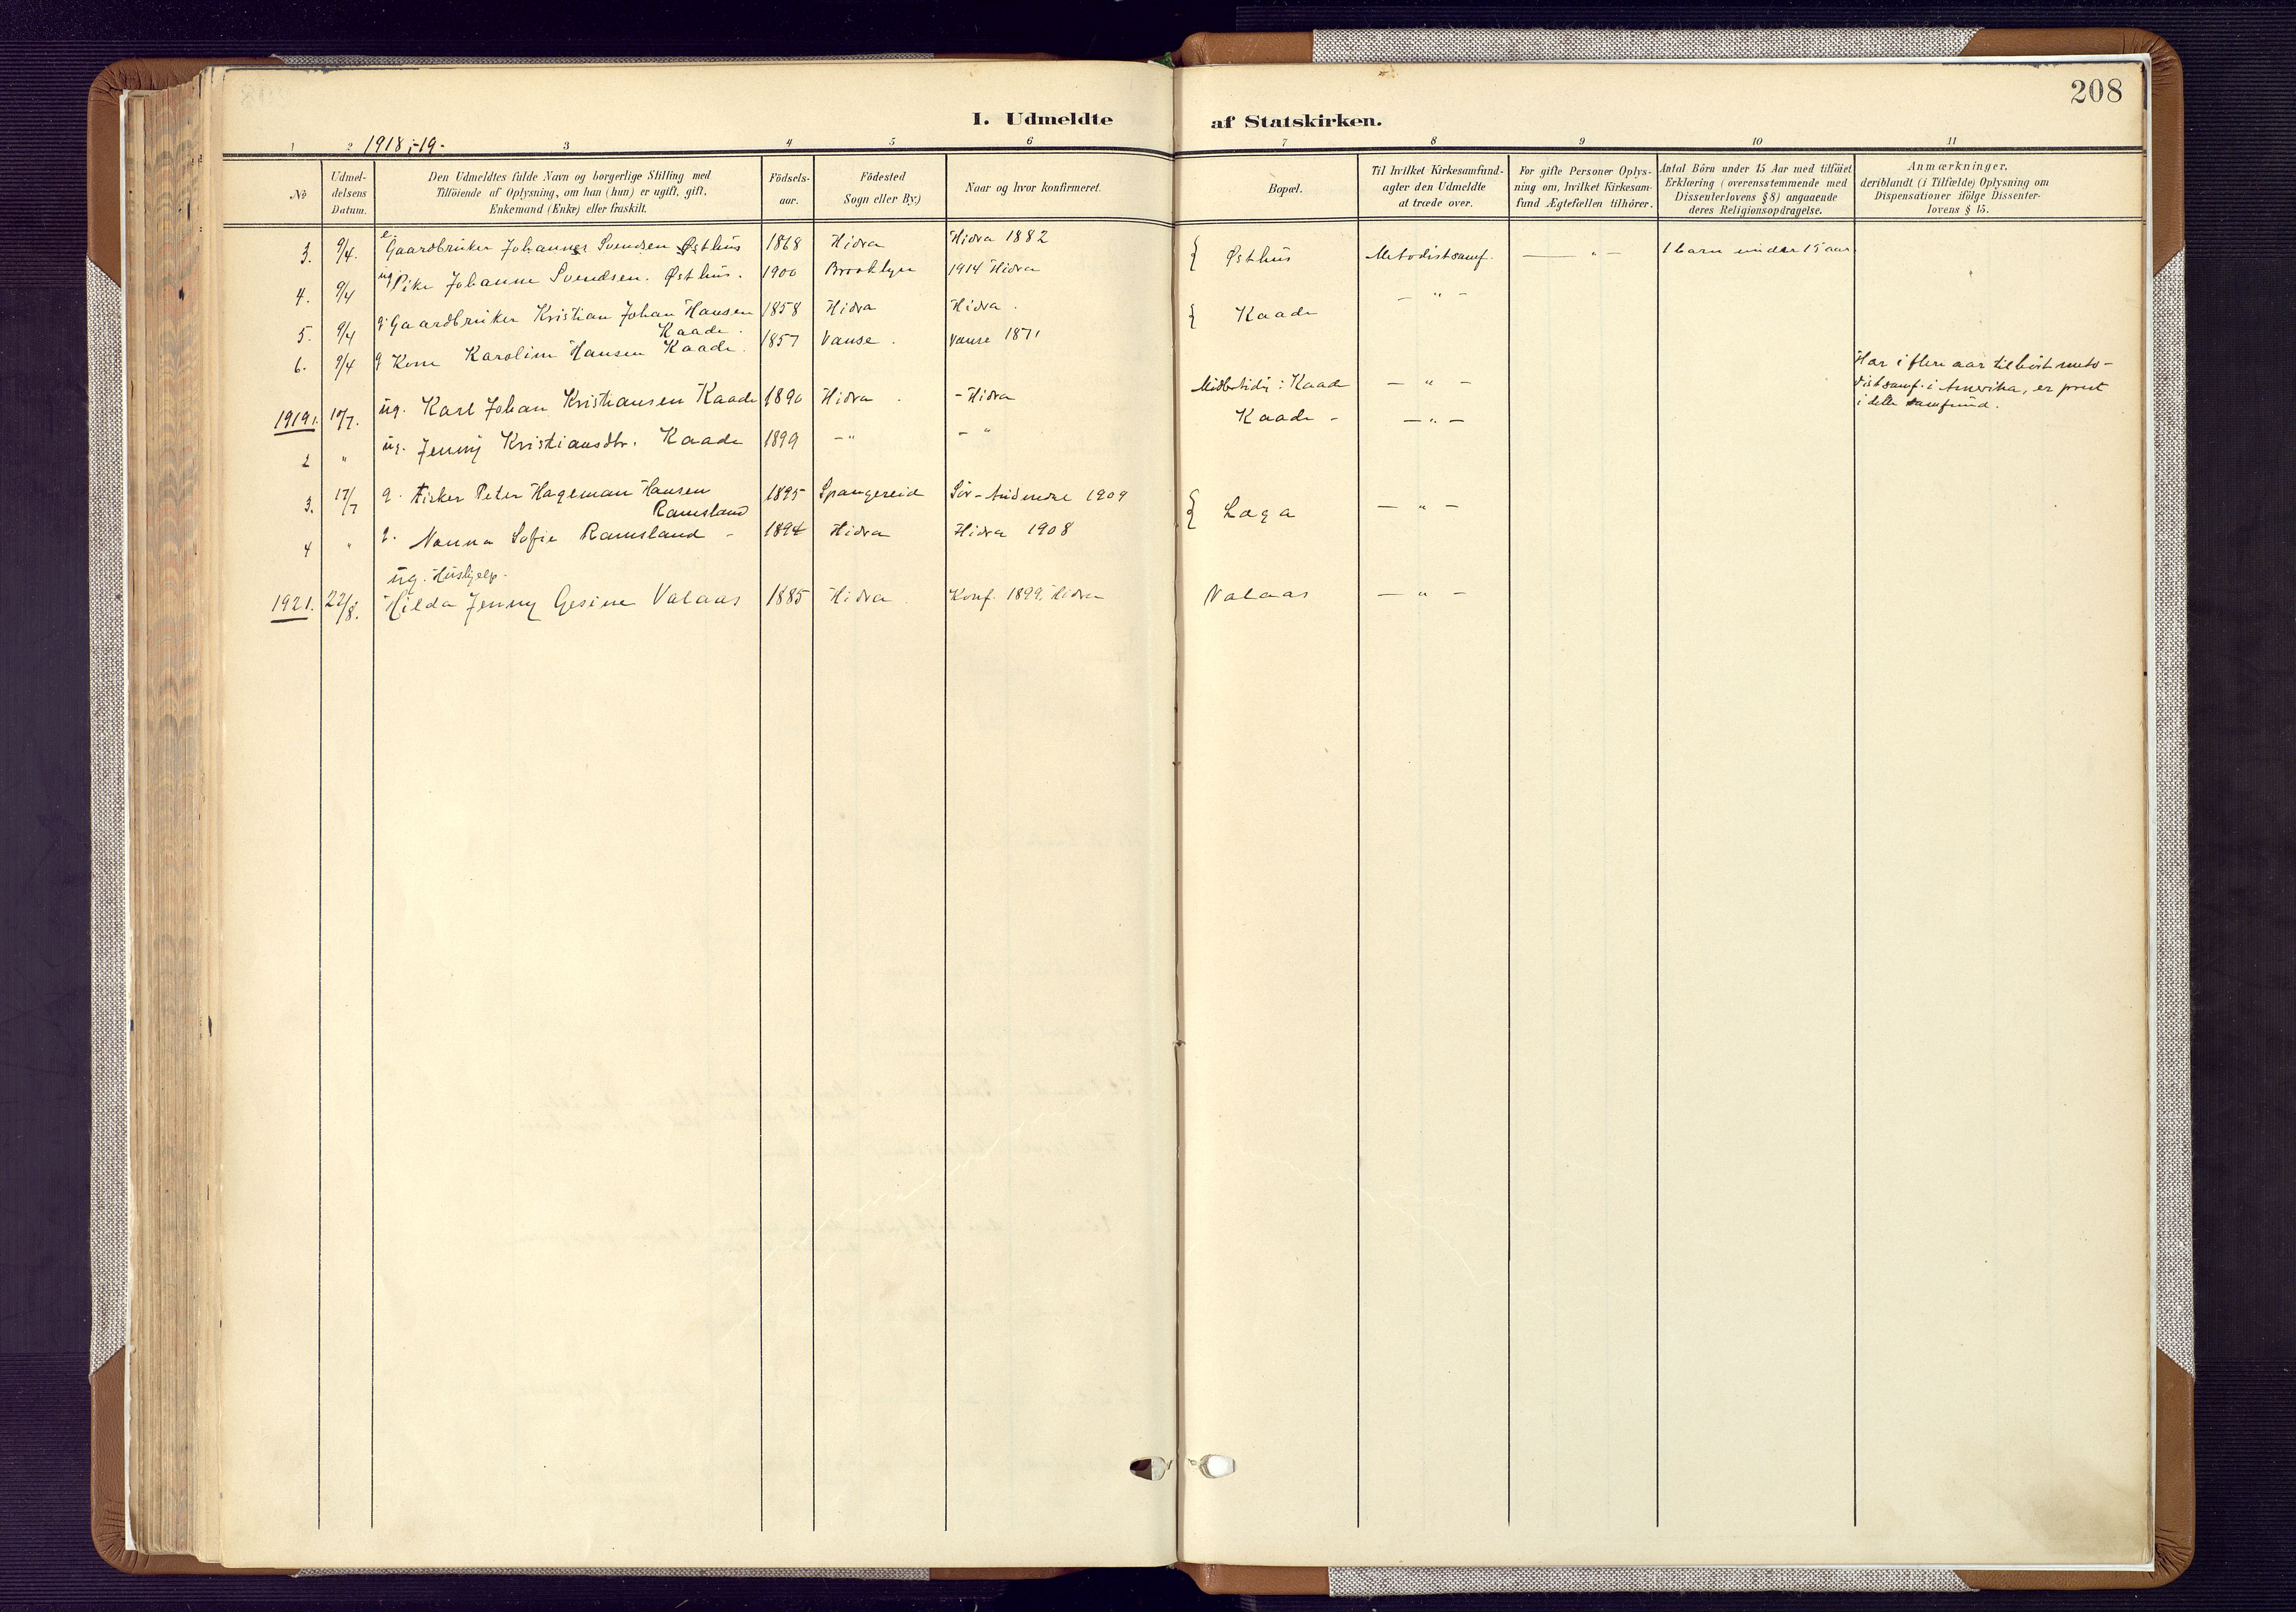 208
I. Udmeldte af Statskirken.
1 2 1918,-19- 3 4 5 6 7 8 9 10 11
No
Udmeldelsens Datum.
Den Udmeldtes fulde Navn og borgerlige Stilling med
Tilföiende af Oplysning, om han (hun) er ugift, gift,
Enkemand (Enke) eller fraskilt.
Födsels-
aar.
Födested
Sogn eller By)
Naar og hvor konfirmeret.
Bopæl.
Til hvilket Kirkesamfund-
agter den Udmeldte
at træde over.
For gifte Personer Oplys-
ning om, hvilket Kirkesam-
fund Ægtefællen tilhörer.
Antal Börn under 15 Aar med tilföiet
Erklæring (overensstemmende med
Dissenterlovens § 8) angaaende
deres Religionsopdragelse.
Anmærkninger,
deriblandt (i Tilfælde) Oplysning om
Dispensationer ifölge Dissenter-
lovens § 15.
3. 9/4. e Gaardbruker Johannes Svendsen Østhus 1868 Hidra Hidra 1882 Østhus Metodistsamf. — " — 1 barn under 15 aar
4. 9/4 ug Pike Johanne Svendsen. Østhus. 1900 Brooklyn 1914 Hidra — " —
5. 9/4 g Gaardbruker Kristian Johan Hansen Kaade. 1858 Hidra Hidra. Kaade
6. 9/4 g Kone Karoline Hansen Kaade. 1857 Vanse. Vanse 1871
1919 1. 17/7. ug. Karl Johan Kristiansen Kaade 1890 Hidra. - Hidra Midlertidig: Kaade — " — Har i flere aar tilhört meto-
distsamf. i Amerika, er prest
i dette samfund.
2 " ug. Jenny Kristiansdtr. Kaade 1899 - " - " Kaade - — " —
3. 17/7 g. Fisker Peter Hageman Hansen Ramsland 1895 Spangereid Sör-Audnedal 1909 Laga — " —
4 " g. Nanna Sofie Ramsland - 1894 Hidra Hidra 1908
ug. Hushjelp-
1921. 22/8. Hilda Jenny Gesine Valaas 1885 Hidra Konf. 1899, Hidra Valaas — " —